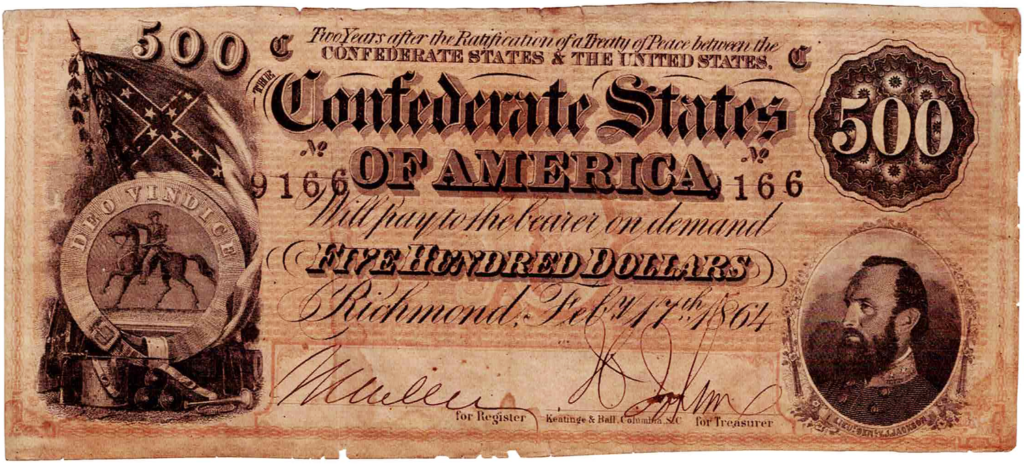 500
C
Two Years after the Ratification of a Treaty of Peace between the
CONFEDERATE STATES & THE UNITED STATES.
C
THE
Confederate States
OF AMERICA
500
No 9166
No 9166
Will pay to the bearer on demand
FIVE HUNDRED DOLLARS
Richmond, Feby 17th 1864
DEO VINDICE
for Register
Keatinge & Ball, Columbia, S.C
for Treasurer
LIEUT. GEN. T.J. JACKSON